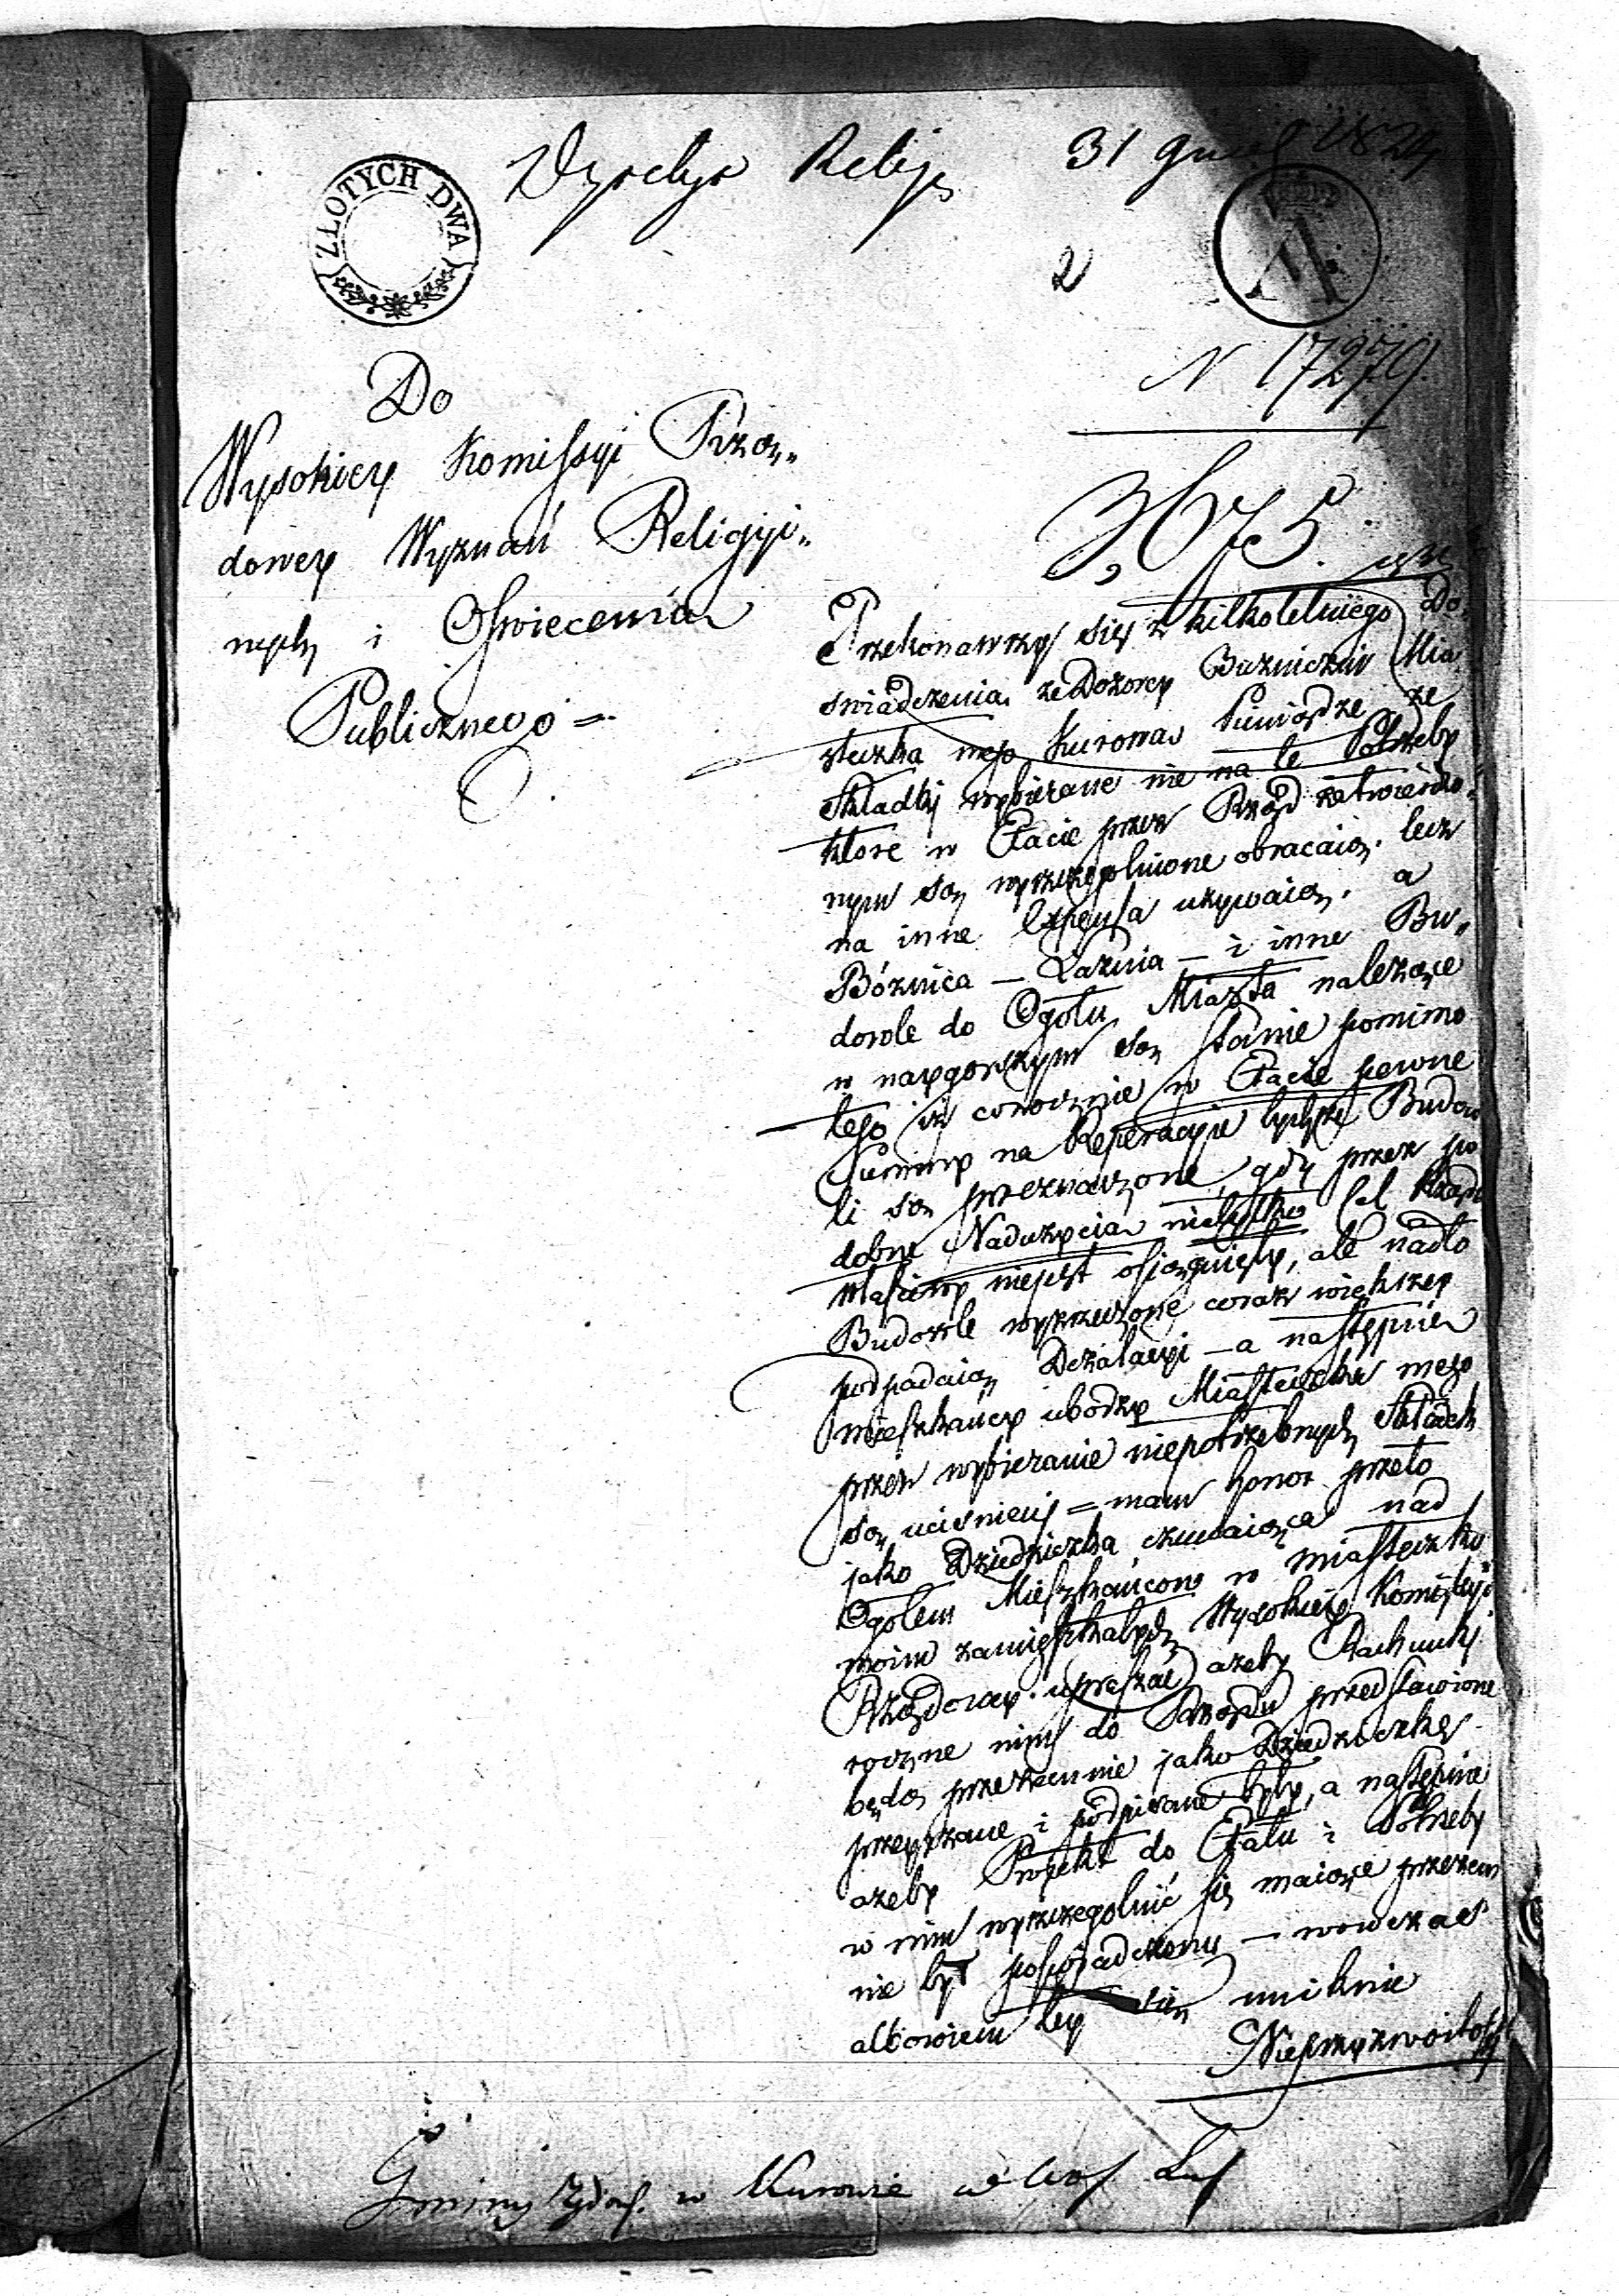 ZŁOTYCH DWA
Dyrekcya Relig. 31 182
2
A
N 17279.
Do
Wysokiey Komissyi Rzą„
dowey Wyznań Religiyi„
nych i Oswiecenia
Publicznego =
3675.
Przekonawszy się z kilkoletniego Do„
swiadczenia, że Dozorcy Bozniczni Mia„
steczka mego Kurowa Pieniądze ze
Składki wybierane nie na te Potrzeby
ktore w Etacie przez Rząd zatwierdzo„
nym są wyszczegolnione obracaią. lecz
na inne Expensa używaią. a
Bóżnica — Łaznia — i inne Bu„
dowle do Ogołu Miasta należące
w naygorszym są stanie pomimo
tego iż corocznie w Etacie pewne
Summy na Reperacyie tychże Budow
li są przeznaczone, gdy przez po
dobne Naduzycia nietylko Cel Rządu
własciwy nie jest osiągnięty, ale nadto
Budowle wyrzeczone coraz większey
podpadaią Dezolacyi — a następnie
mieszkańcy ubodzy Miasteczka mego
przez wybieranie niepotrzebnych Składek
są ucisnieni = mam honor przeto
jako Dziedziczka czuwaiąca nad
Ogołem Mieszkańcow w miasteczku
moim zamieszkałych, Wysokiey Komissyi
Rządowey upraszać, ażeby Rachunki
roczne nim do Rządu przedstawione
będą przezemnie jako Dziedziczkę
przeyrzane i podpisane były, a następnie
ażeby Projekt do Etatu i Potrzeby
w nim wyszczegolnić się maiące przezem
nie był poswiadczony — wowczas
albowiem tey się uniknie
Nieprzyzwoitosci
Gminy Żydows. w Kurowie w Wo Lub